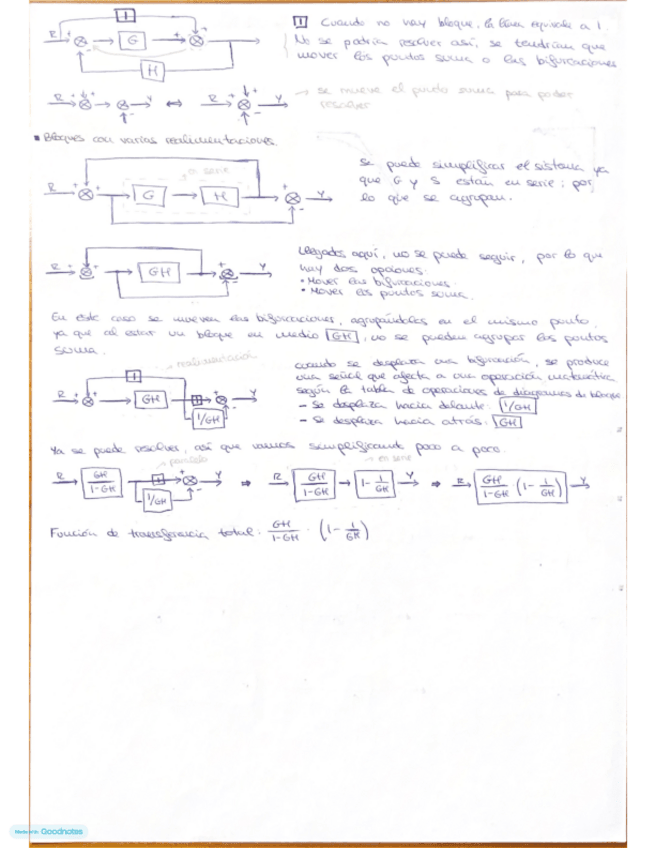 1 Cuando no hay bloque, la línea equivale a 1.
No se podría resolver así, se tendrían que
mover los puntos suma o las bifurcaciones
R + + G + +
-
H
R + + Y ⇔ R + + Y
-
→ se mueve el punto suma para poder
resolver
▪ Bloques con varias realimentaciones.
en serie
R + + G H + Y
-
Se puede simplificar el sistema ya
que G y S están en serie; por
lo que se agrupan.
R + + GH + Y
-
Llegados aquí, no se puede seguir, por lo que
hay dos opciones.
• Mover las bifurcaciones.
• Mover los puntos suma.
En este caso se mueven las bifurcaciones, agrupándolas en el mismo punto,
ya que al estar un bloque en medio GH, no se pueden agrupar los puntos
suma.
→ realimentación
R + + 1 GH 1 + Y
1/GH -
cuando se desplaza una bifurcación, se produce
una señal que afecta a una operación matemática
según la tabla de operaciones de diagramas de bloque
- Se desplaza hacia delante: 1/GH
- Se desplaza hacia atrás: GH
Ya se puede resolver, así que vamos simplificando poco a poco.
→ paralelo
→ en serie
R GH/1-GH 1 + Y 1/GH - ⇒ R GH/1-GH 1 - 1/GH Y ⇒ R GH/1-GH (1 - 1/GH) Y
Función de transferencia total: GH/1-GH · (1 - 1/GH)
Made with Goodnotes